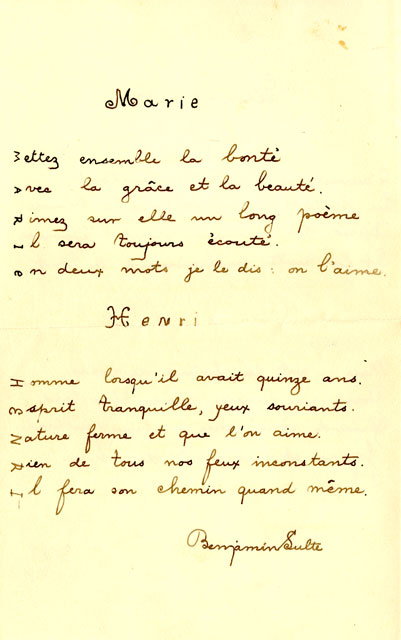 Marie
Mettez ensemble la bonté
Avec la grâce et la beauté.
Rimez sur elle un long poème
Il sera toujours écouté.
En deux mots je le dis : on l'aime.
Henri
Homme lorsqu'il avait quinze ans.
Esprit tranquille, yeux souriants.
Nature ferme et que l'on aime.
Rien de tous nos feux inconstants.
Il fera son chemin quand même.
Benjamin Sulte